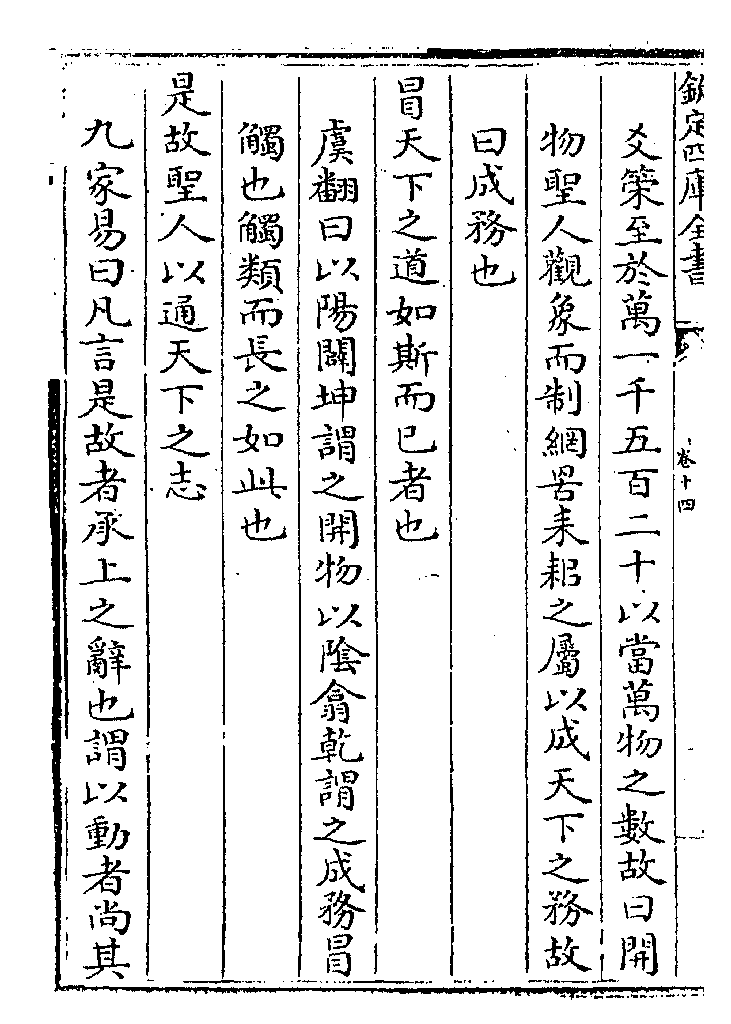 欽定四庫全書
卷十四
爻䇿至於萬一千五百二十以當萬物之數故曰開
物聖人觀象而制網罟耒耜之屬以成天下之務故
曰成務也
冒天下之道如斯而已者也
虞翻曰以陽闢坤謂之開物以陰翕乾謂之成務冒
觸也觸類而長之如此也
是故聖人以通天下之志
九家易曰凡言是故者承上之辭也謂以動者尚其